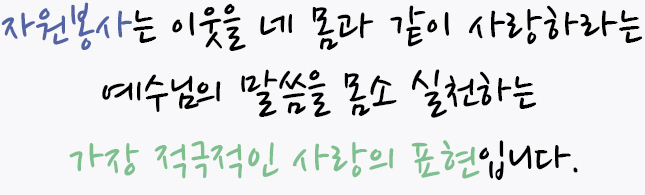 자원봉사는 이웃을 네 몸과 같이 사랑하라는
예수님의 말씀을 몸소 실천하는
가장 적극적인 사랑의 표현입니다.